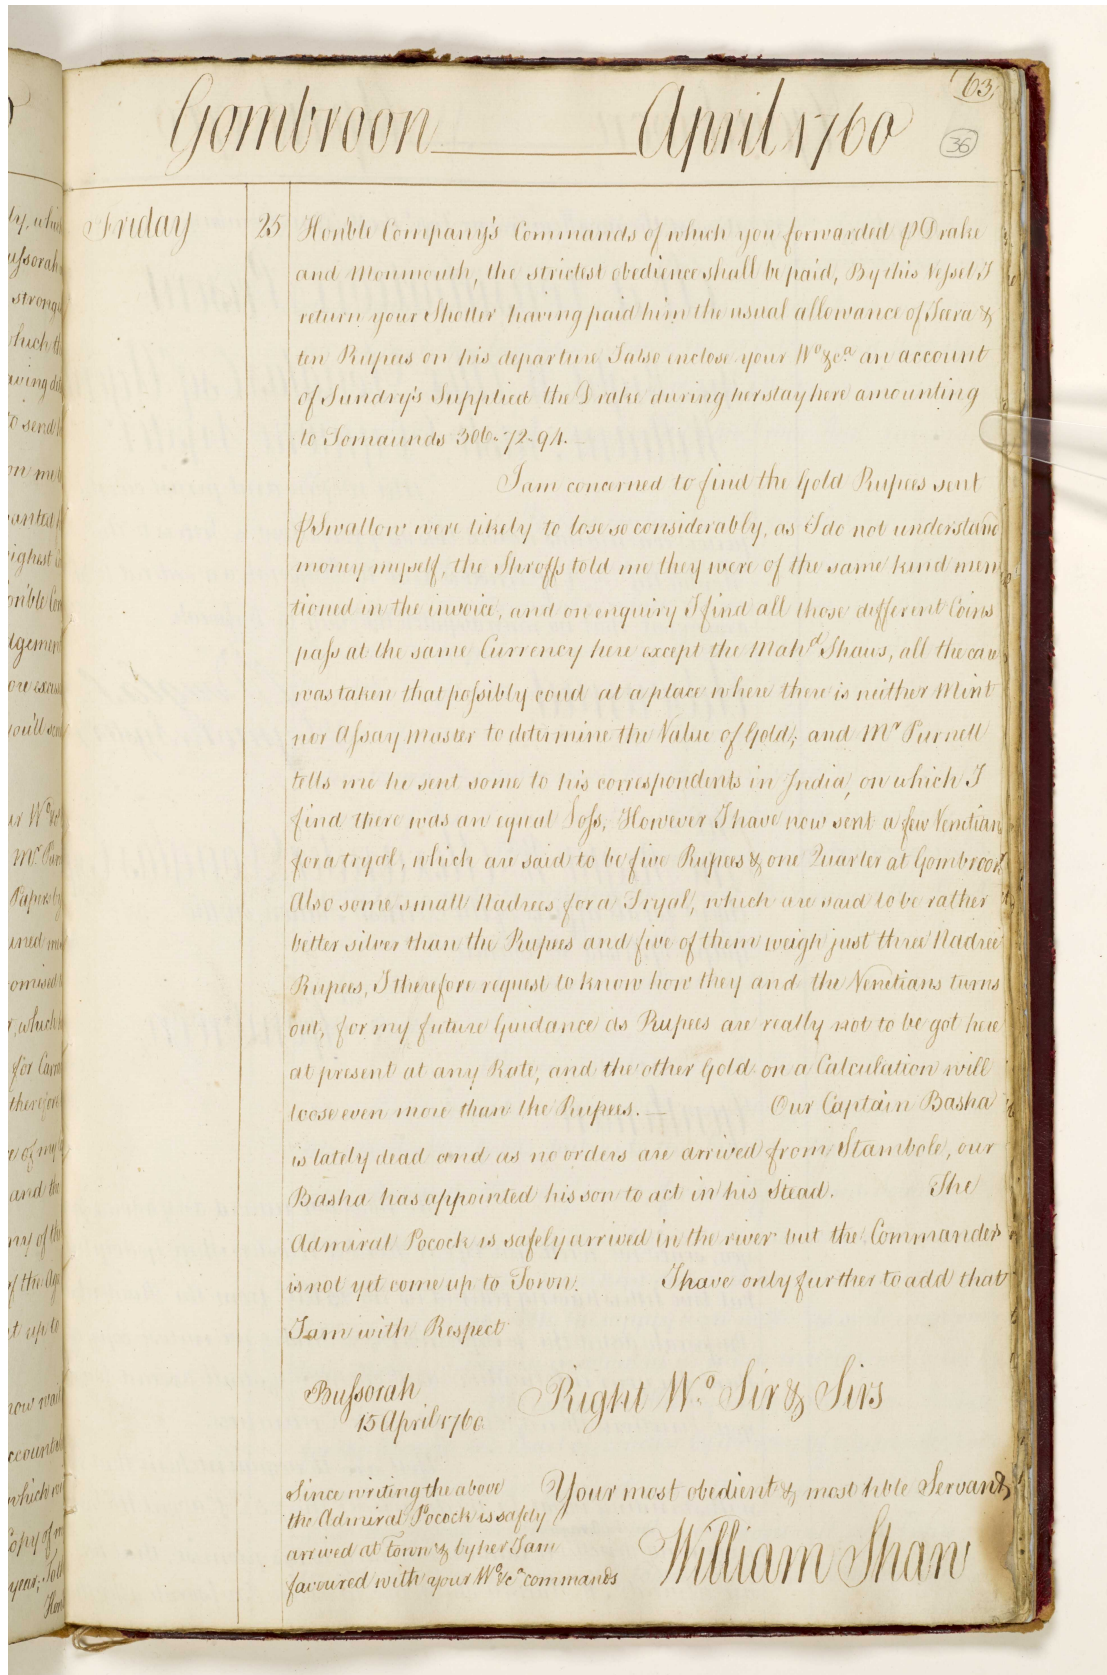 63
Gombroon April 1760
36
Friday 25 Honble Company's Commands of which you forwarded P Drake
and Monmouth, the strictest obedience shall be paid, By this Vessel I
return your Shotter having paid him the usual allowance of Seera &
ten Rupees on his departure I also enclose your Wo. &ca. an account
of Sundry's Supplied the Drake during her stay here amounting
to Tomaunds 306-72-94.
I am concerned to find the Gold Rupees sent
P Swallow were likely to lose so considerably, as I do not understand
money myself, the Shroffs told me they were of the same kind men
tioned in the invoice, and on enquiry I find all those different Coins
pass at the same Currency here except the Mahd. Shaus, all the care
was taken that possibly coud at a place where there is neither Mint
nor Assay Master to determine the Value of Gold; and Mr Purnell
tells me he sent some to his correspondents in India, on which I
find there was an equal Loss, However I have now sent a few Venetians
for a tryal, which are said to be five Rupees & one Quarter at Gombroon
Also some small Nadrees for a Tryal, which are said to be rather
better silver than the Rupees and five of them weigh just three Nadree
Rupees, I therefore request to know how they and the Venetians turns
out, for my future Guidance as Rupees are really not to be got here
at present at any Rate, and the other Gold on a Calculation will
loose even more than the Rupees. — Our Captain Basha
is lately dead and as no orders are arrived from Stambole, our
Basha has appointed his son to act in his Stead. The
Admiral Pocock is safely arrived in the river but the Commander
is not yet come up to Town. I have only further to add that
I am with Respect
Bussorah Right Wo. Sir & Sirs
15 April 1760
Since writing the above Your most obedient & most hble Servant
the Admiral Pocock is safely
arrived at Town & by her I am William Shaw
favoured with your Wo. &ca commands